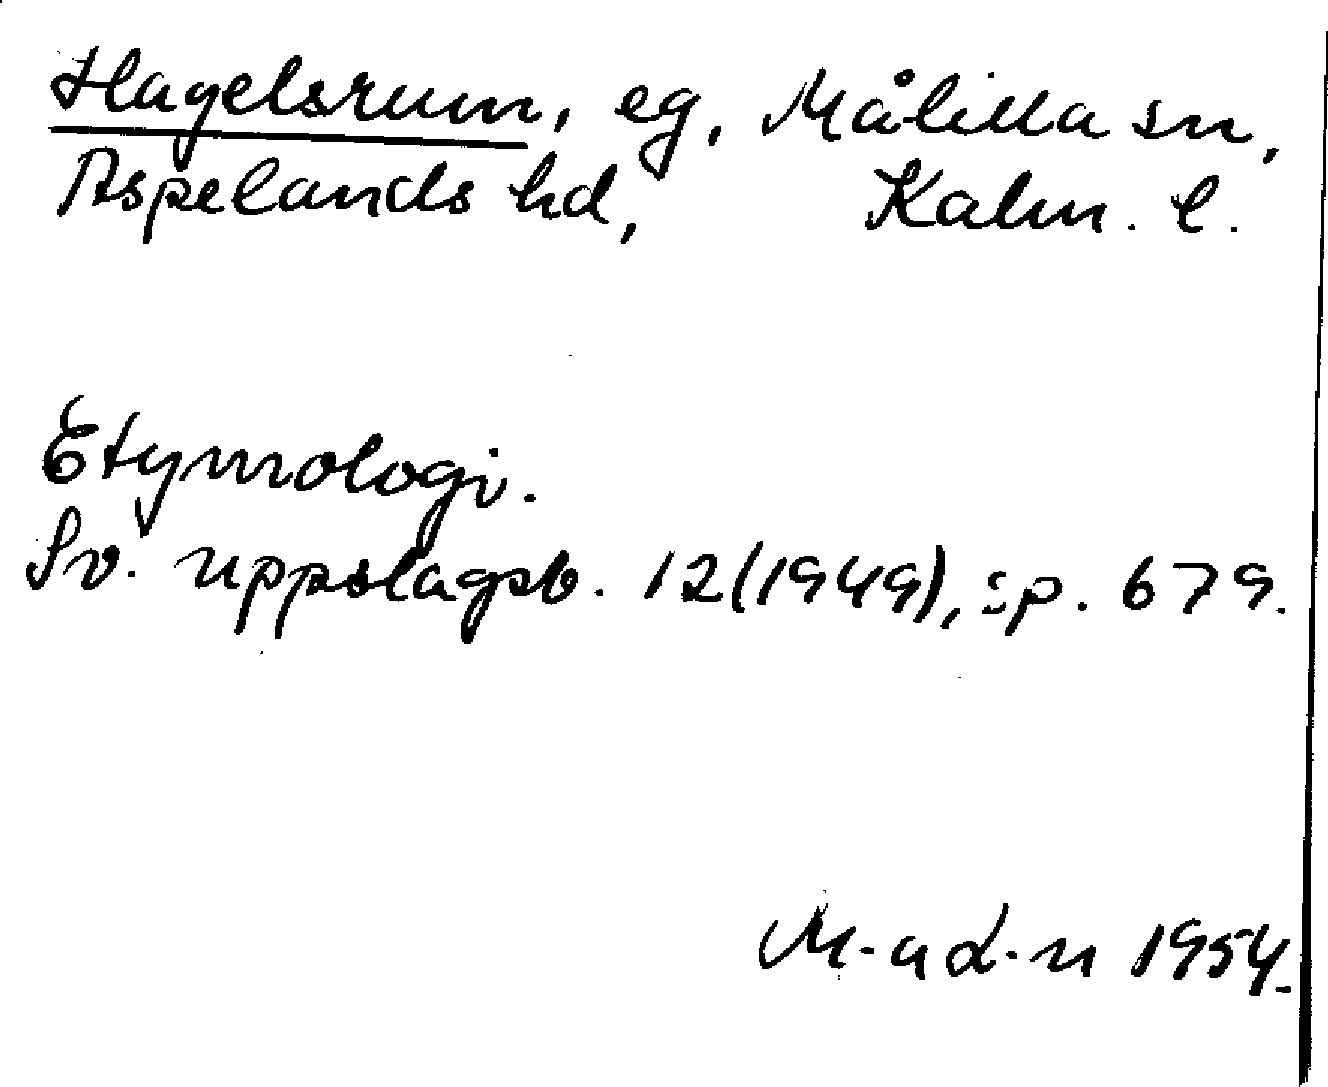 Hagelsrum, eg, Målilla sn,
Aspelands hd, Kalm. l.
Etymologi.
Sv. uppslagsb. 12(1949), sp. 679.
1954.